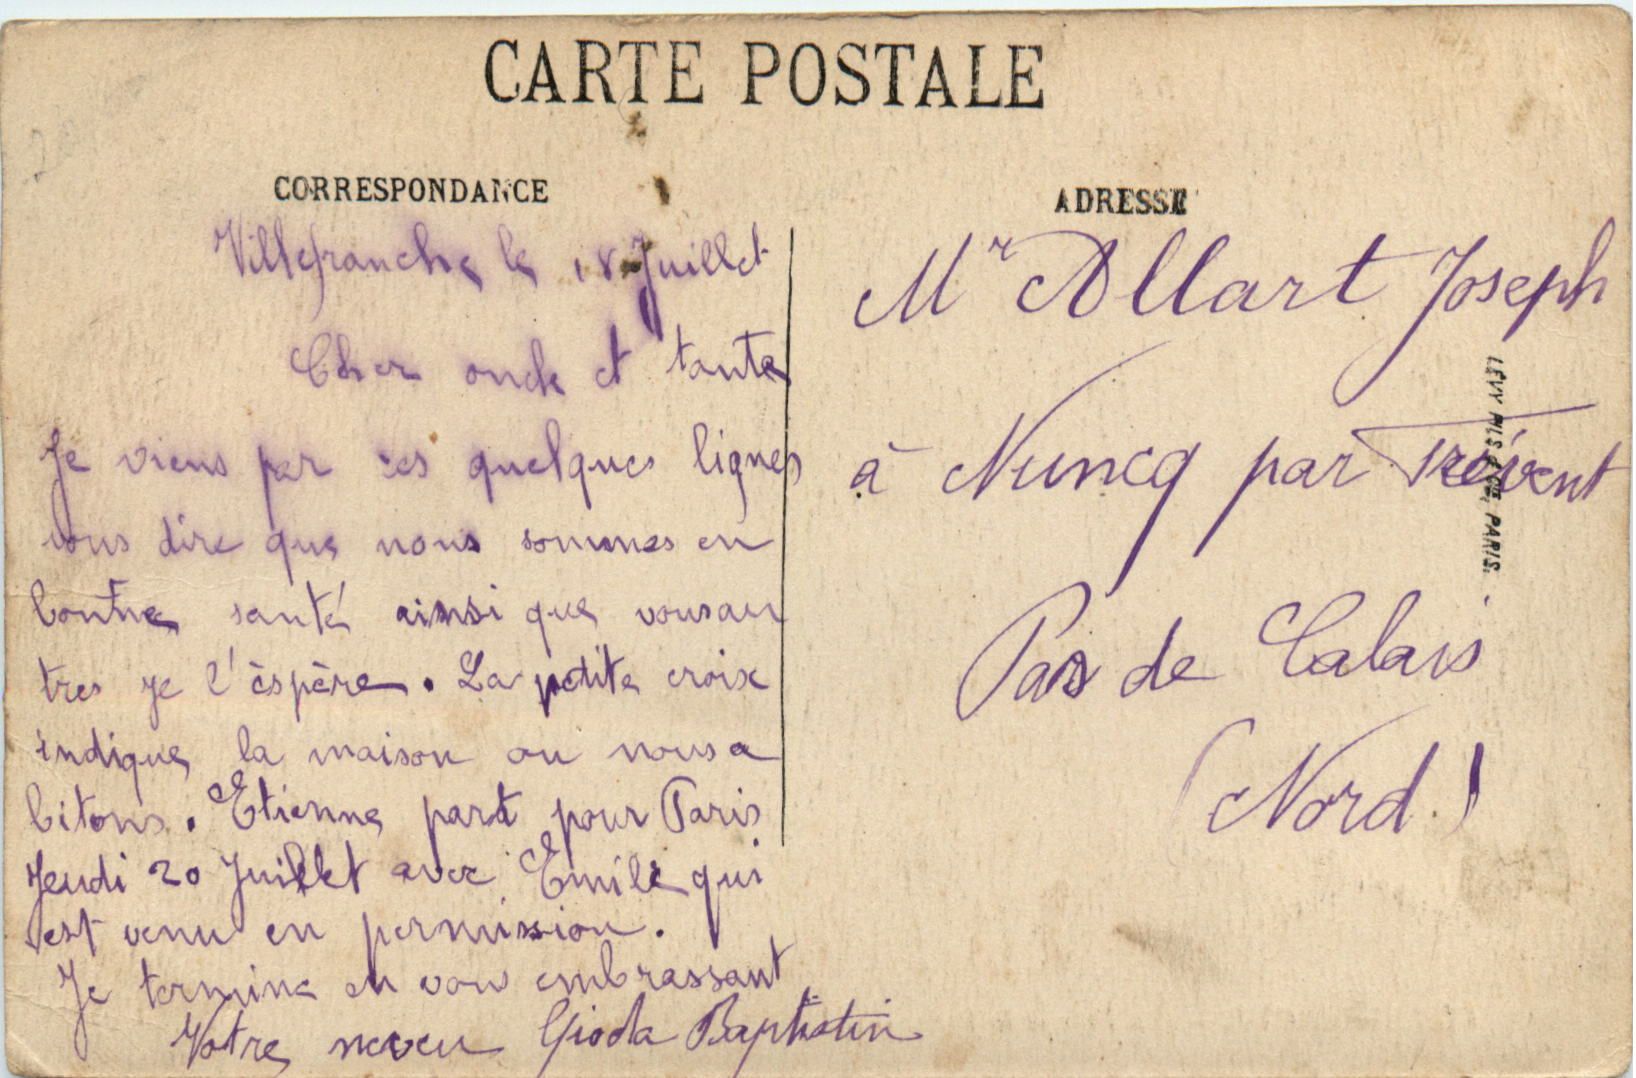 CARTE POSTALE
CORRESPONDANCE
Villefranche le 18 Juillet
Cher oncle et tante
Je viens par ces quelques lignes
vous dire que nous sommes en
bonne santé ainsi que vous au
tres je l'èspère. La petite croix
indique la maison ou nous a
bitons. Etienne part pour Paris
Jeudi 20 Juillet avec Emile qui
est venu en permission.
Je termine en vous embrassant
Votre neveu Gioda Baptistin
ADRESSE
Mr Allart Joseph
à Nuncq par Frévent
Pas de Calais
(Nord)
LÉVY FILS & CIE, PARIS.